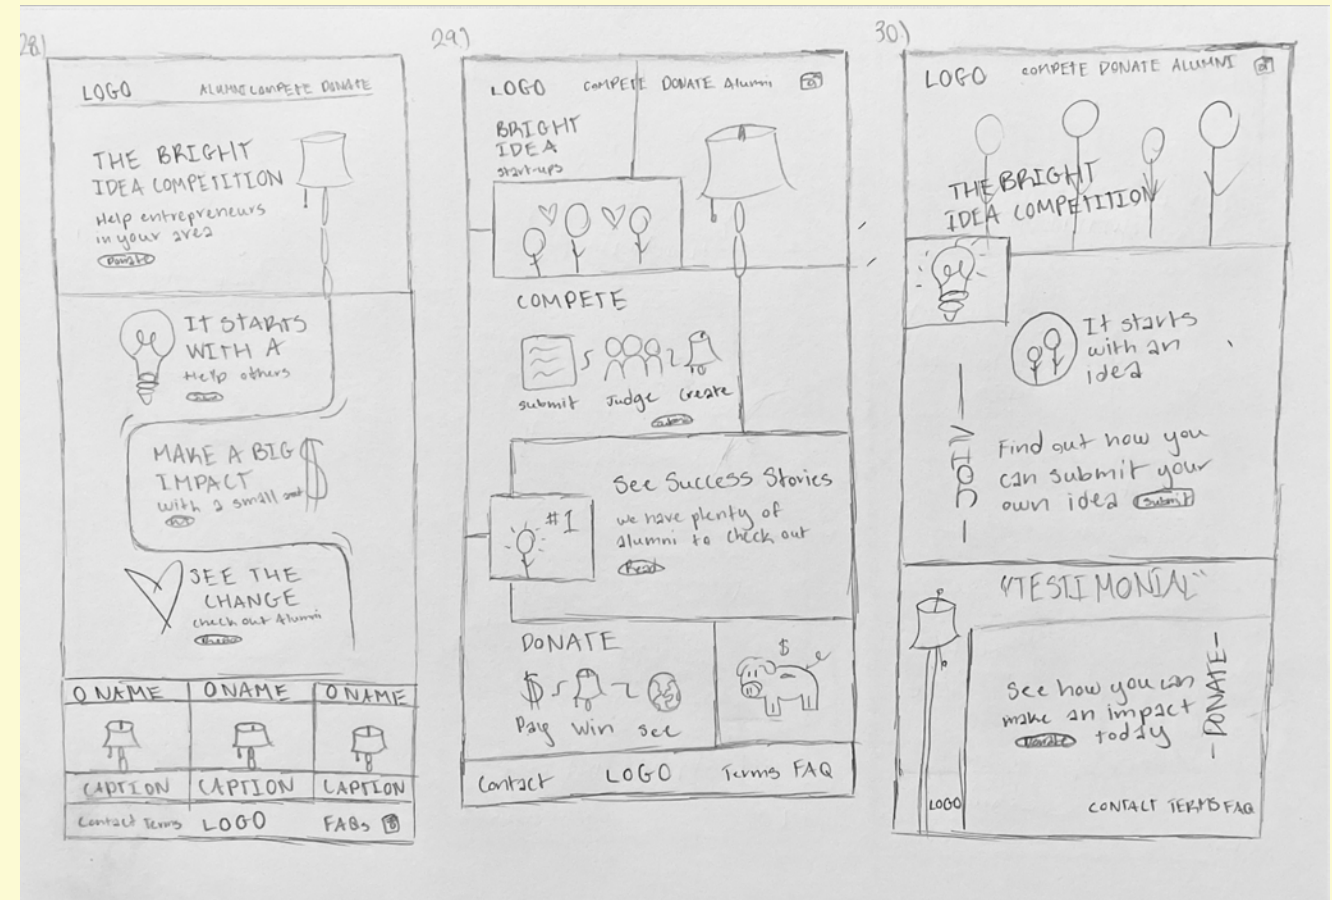 28.)
LOGO ALUMNI COMPETE DONATE
THE BRIGHT
IDEA COMPETITION
Help entrepreneurs
in your area
Donate
IT STARTS
WITH A
Help others
MAKE A BIG
IMPACT $
with a small
SEE THE
CHANGE
check out Alumni
O NAME O NAME O NAME
CAPTION CAPTION CAPTION
Contact Terms LOGO FAQs
29.)
LOGO COMPETE DONATE Alumni
BRIGHT
IDEA
start-ups
COMPETE
submit Judge Create
See Success Stories
#1
we have plenty of
alumni to check out
Read
DONATE
$
$
Pay Win see
Contact LOGO Terms FAQ
30.)
LOGO COMPETE DONATE ALUMNI
THE BRIGHT
IDEA COMPETITION
It starts
with an
idea
— JOIN —
Find out how you
can submit your
own idea Submit
"TESTIMONIAL"
See how you can
make an impact
Donate today
- DONATE -
LOGO CONTACT TERMS FAQ